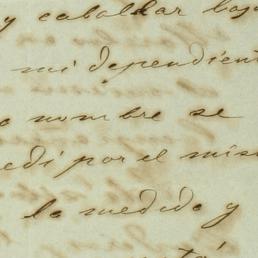 y caballar bajo
mi dependient
o nombre se
edi por el mism
lo medido y
tá